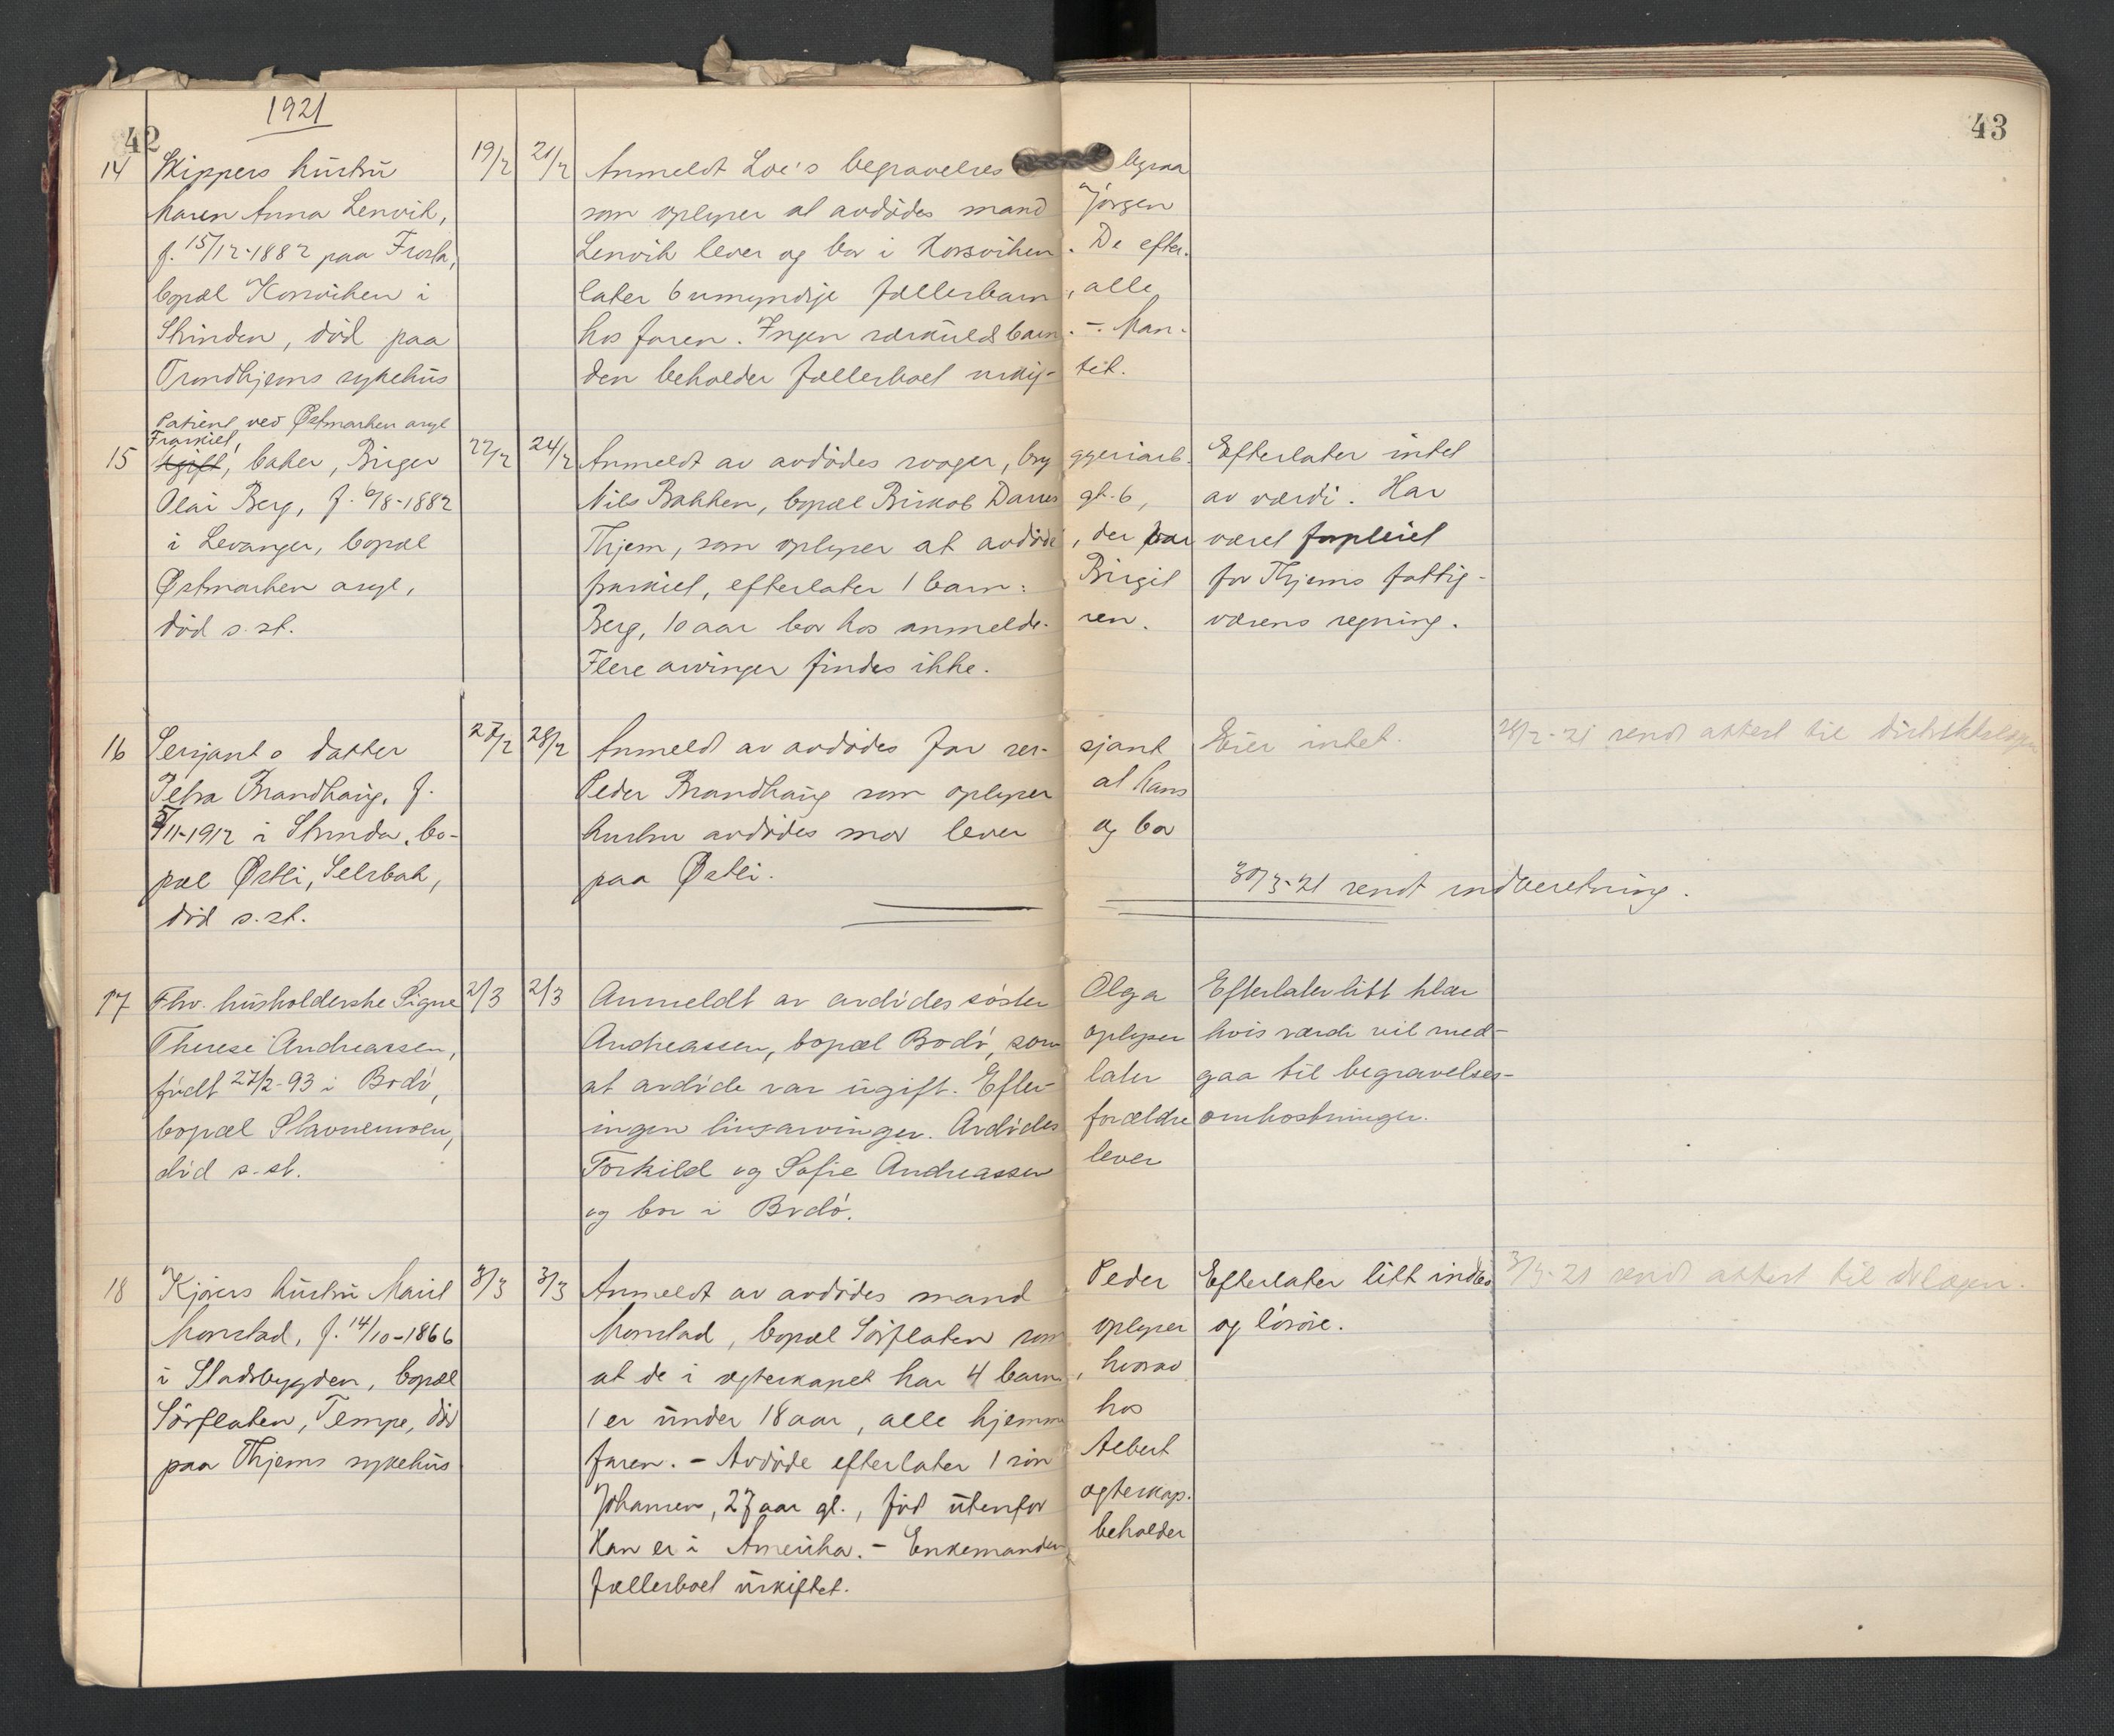 42
1921
43
14 Skippers hustru 19/2 21/2 Anmeldt Loe's begravelses byraa
Maren Anna Lenvik, som oplyser at avdödes mand Jörgen
f. 15/12-1882 paa Frosta, Lenvik lever og bor i Korsviken. De efter-
bopæl Korsviken i later 6 umyndige fællesbarn, alle
Strinden, död paa hos faren. Ingen særkuldsbarn. -. Man-
Trondhjems sykehus den beholder fællesboet uskif- tet.
Patient ved Östmarken asyl
Fraskilt,
15 ugift, baker, Birger 22/2 24/2 Anmeldt av avdödes svoger, bry ggeriarb. Efterlater intet
Olai Berg, f. 6/8-1882 Nils Bakken, bopæl Biskop Darres gt. 6, av værdi. Har
i Levanger, bopæl Thjem, som oplyser at avdöde, der var været forpleiet
Østmarken asyl, fraskilt, efterlater 1 barn: Birgit for Thjems fattig-
död s. st. Berg, 10 aar bor hos anmelde- ren. væsens regning.
Flere arvinger findes ikke.
16 Serjants datter 27/2 28/2 Anmeldt av avdödes far ser- sjant Eier intet. 28/2-21 sendt attest til distriktslægen
Petra Brandhaug, f. Peder Brandhaug som oplyser at hans
/11-1912 i Strinda, bo- hustru avdödes mor lever og bor
pæl Østli, Selsbak, paa Østli.
död s. st.
30/3-21 sendt indberetning.
17 Fhv. husholderske Signe 2/3 2/3 Anmeldt av avdödes söster Olga Efterlater litt klær
Therese Andreassen, Andreassen, bopæl Bodö, som oplyser hvis værdi vil med-
födt 27/2-93 i Bodö, at avdöde var ugift. Efter- later gaa til begravelses-
bopæl Stavnemoen, ingen livsarvinger. Avdödes forældre omkostninger.
död s. st. Torkild og Sofie Andreassen lever
og bor i Bodö.
18 Kjörers hustru Marit 3/3 3/3 Anmeldt av avdödes mand Peder Efterlater litt indbo 3/3-21 sendt attest til d.lægen.
Monstad, f. 14/10-1866 Monstad, bopæl Sörflaten som oplyser og lösöre.
i Stadsbygden, bopæl at de i ægteskapet har 4 barn, hvorav
Sörflaten, Tempe, död 1 er under 18 aar, alle hjemme hos
paa Thjems sykehus faren. - Avdöde efterlater 1 sön Albert
Johansen, 27 aar gl., föd utenfor ægteskap.
Han er i Amerika. - Enkemanden beholder
fællesboet uskiftet.